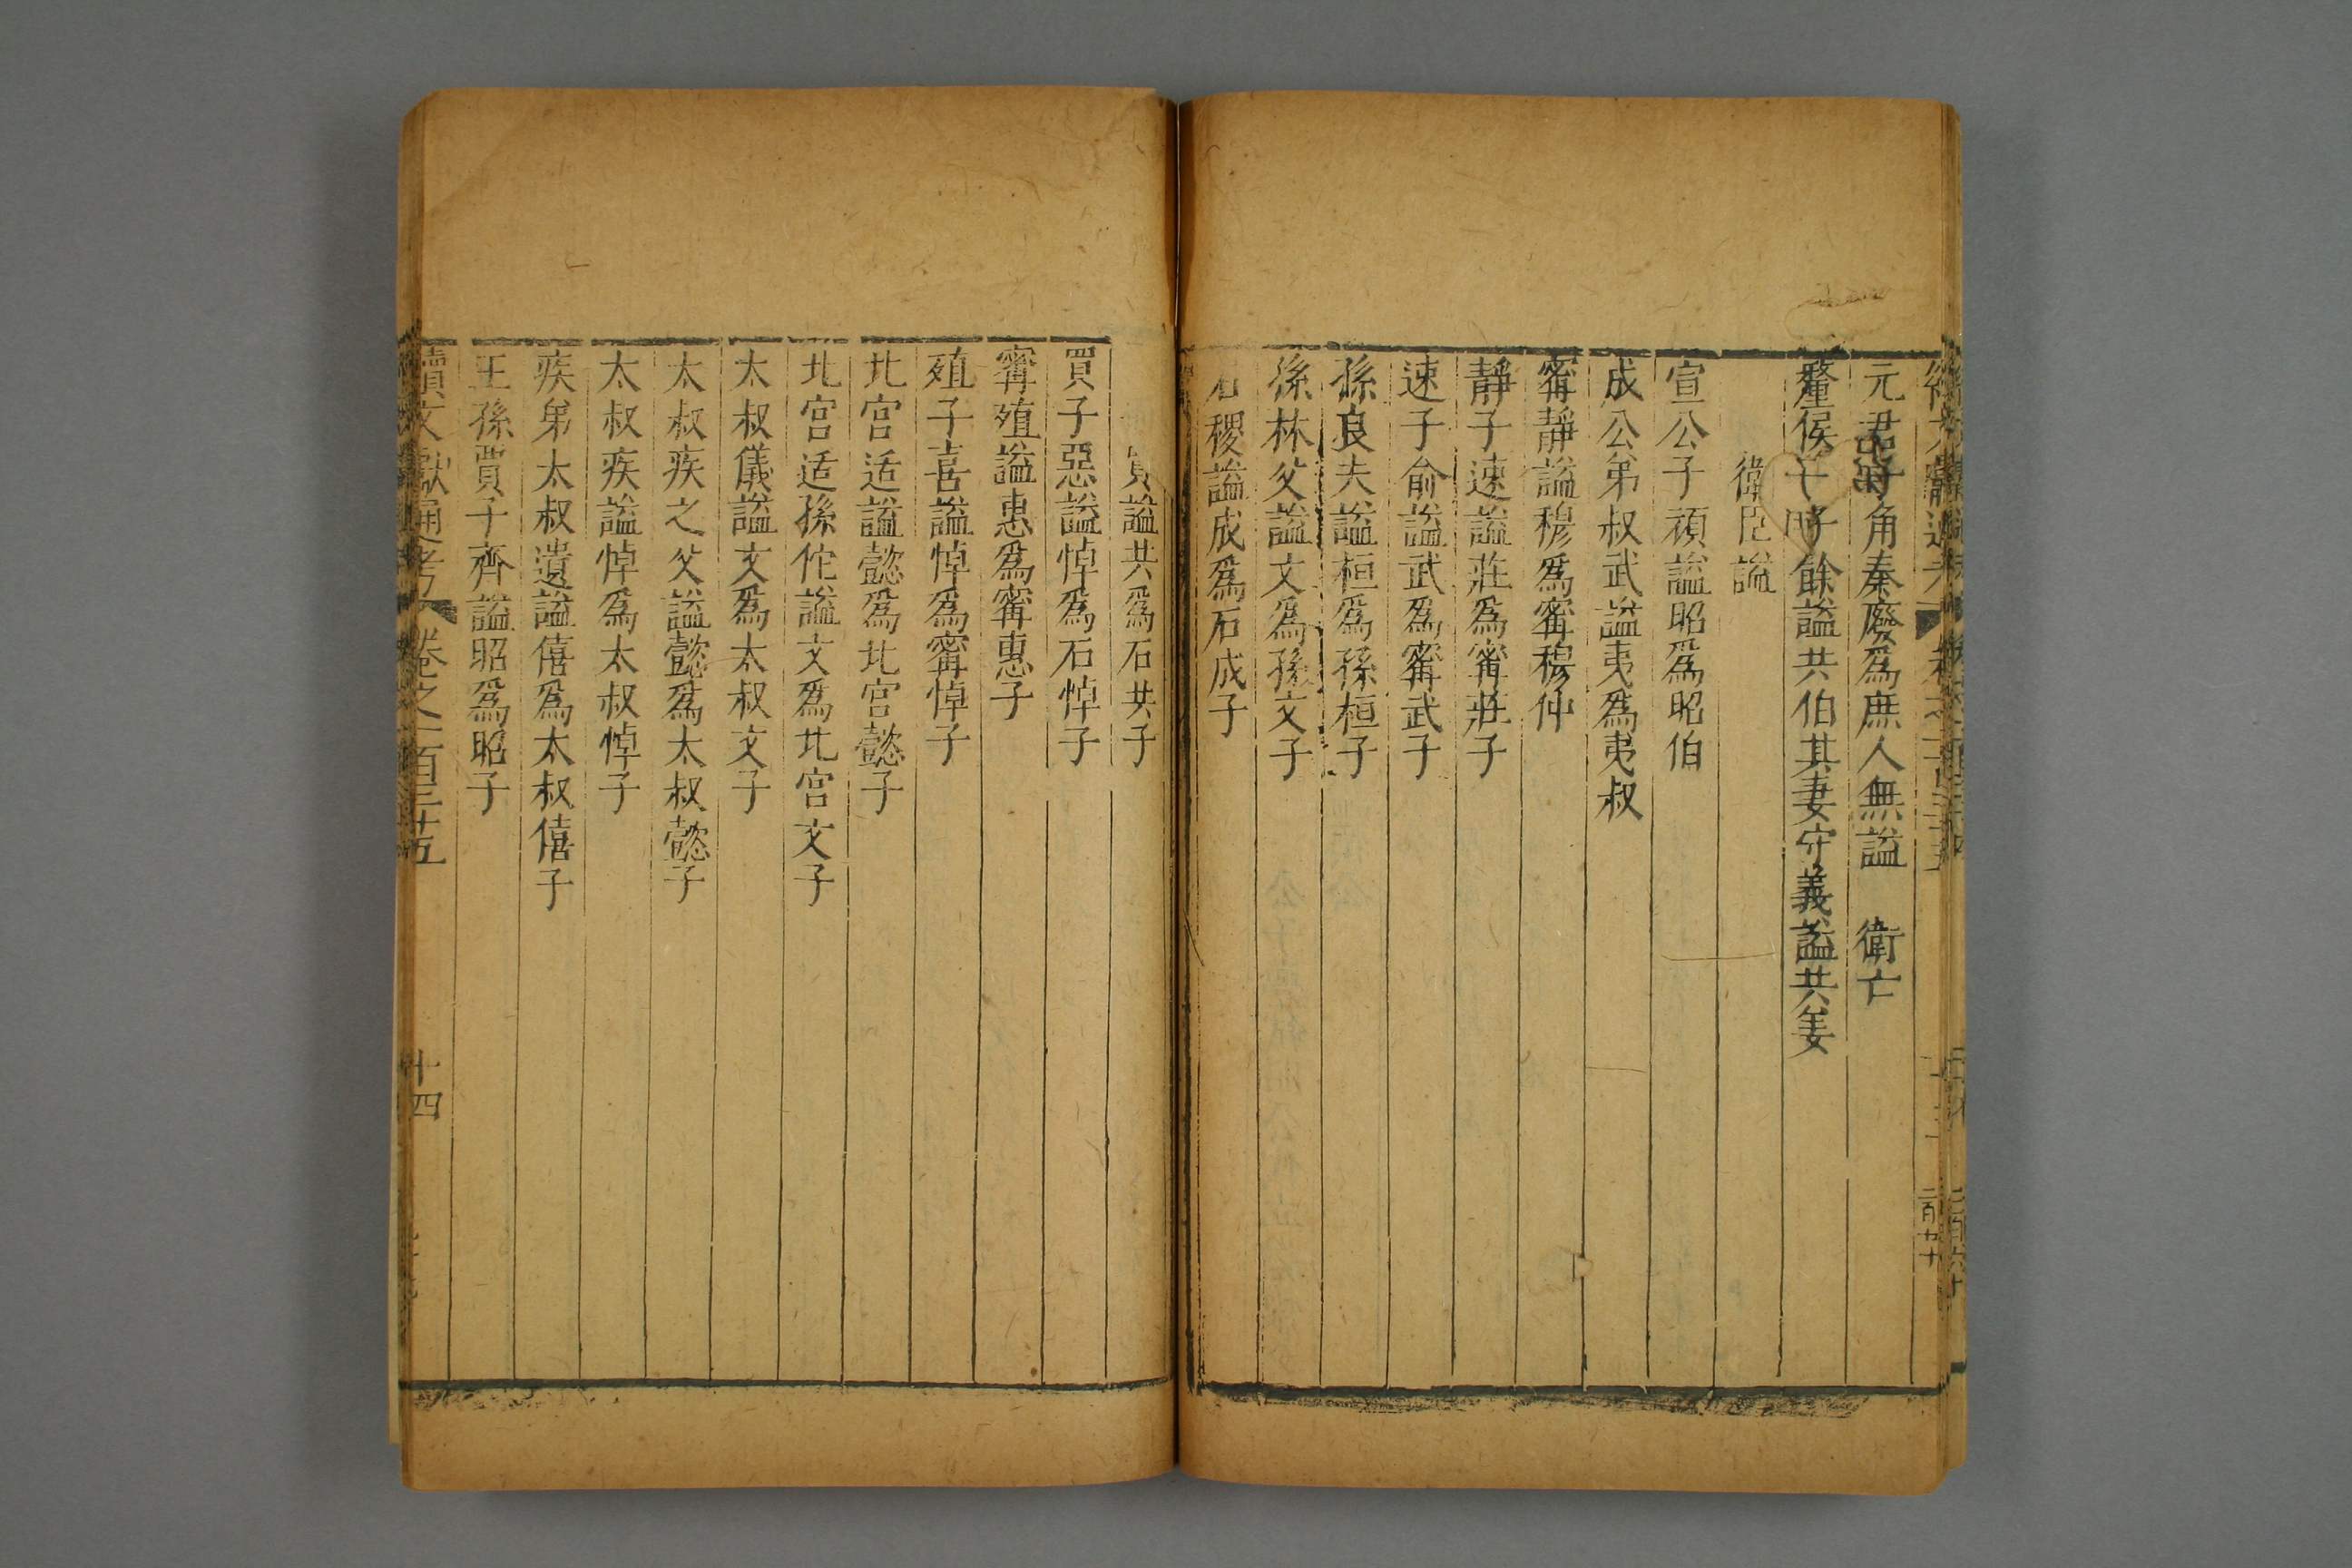 元君子角秦廢爲庶人無謚　衛亡
釐侯世子餘謚共伯其妻守義謚共姜
衛臣謚
宣公子頑謚昭爲昭伯
成公弟叔武謚夷爲夷叔
甯靜謚穆爲甯穆仲
靜子速謚莊爲甯莊子
速子俞謚武爲甯武子
孫良夫謚桓爲孫桓子
孫林父謚文爲孫文子
石稷謚成爲石成子
買謚共爲石共子
買子惡謚悼爲石悼子
甯殖謚惠爲甯惠子
殖子喜謚悼爲甯悼子
北宮适謚懿爲北宮懿子
北宮适孫佗謚文爲北宮文子
太叔儀謚文爲太叔文子
太叔疾之父謚懿爲太叔懿子
太叔疾謚悼爲太叔悼子
疾弟太叔遺謚僖爲太叔僖子
王孫賈子齊謚昭爲昭子
續文獻通考　卷之一百三十五　十四